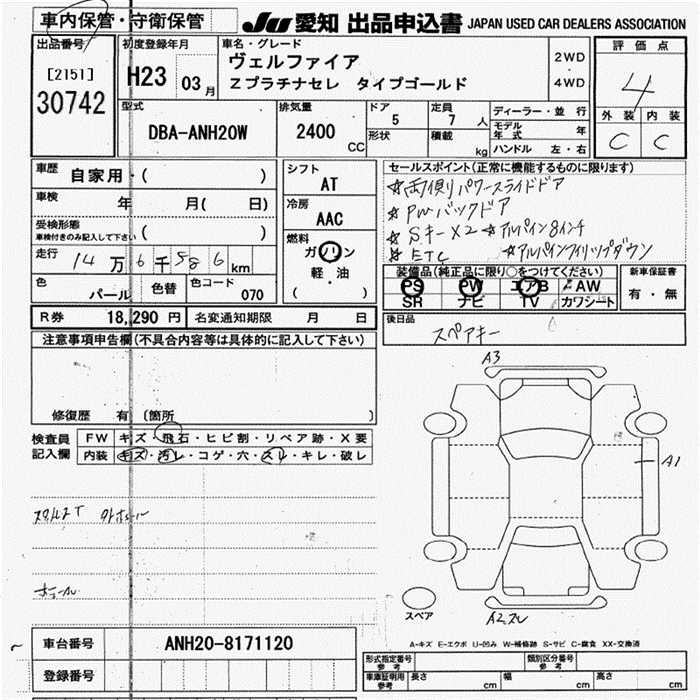 車内保管・守衛保管
JU 愛知 出品申込書 JAPAN USED CAR DEALERS ASSOCIATION
出品番号
[2151]
30742
初度登録年月
H23 03 月
車名・グレード
ヴェルファイア
Zプラチナセレ タイプゴールド
2WD
4WD
評価点
4
外装 内装
C C
型式
DBA-ANH20W
排気量
2400 CC
ドア
5
形状
定員
7 人
積載 kg
ディーラー・並行
モデル年式 年
ハンドル 左・右
車歴 自家用・( )
車検 年 月( 日)
受検形態
車検付きのみ記入して下さい ( )
走行 14万6千586 km
色 パール 色替 色コード 070
シフト
AT
冷房
AAC
燃料
ガソリン
軽・油
( )
セールスポイント(正常に機能するものに限ります)
☆両側リパワースライドドア
☆PWバックドア
☆SキーX2 ☆アルパイン8インチ
☆ETC ☆アルパインフィリップダウン
装備品(純正品に限り○をつけてください)
PS PW エアB AW
SR ナビ TV カワシート
新車保証書
有・無
R券 18,290 円 名変通知期限 月 日
後日品
スペアキー
注意事項申告欄(不具合内容等は具体的に記入して下さい)
修復歴 有 〔箇所 〕
検査員記入欄
FW キズ・飛石・ヒビ割・リペア跡・X要
内装 キズ・汚レ・コゲ・穴・スレ・キレ・破レ
A3
A1
スペア
A2スレ
A-キズ E-エクボ U-凹み W-補修跡 S-サビ C-腐食 XX-交換済
車台番号 ANH20-8171120
登録番号
形式指定番号 参考 類別区分番号 参考
車庫証明用 参考 長さ cm 幅 cm 高さ cm